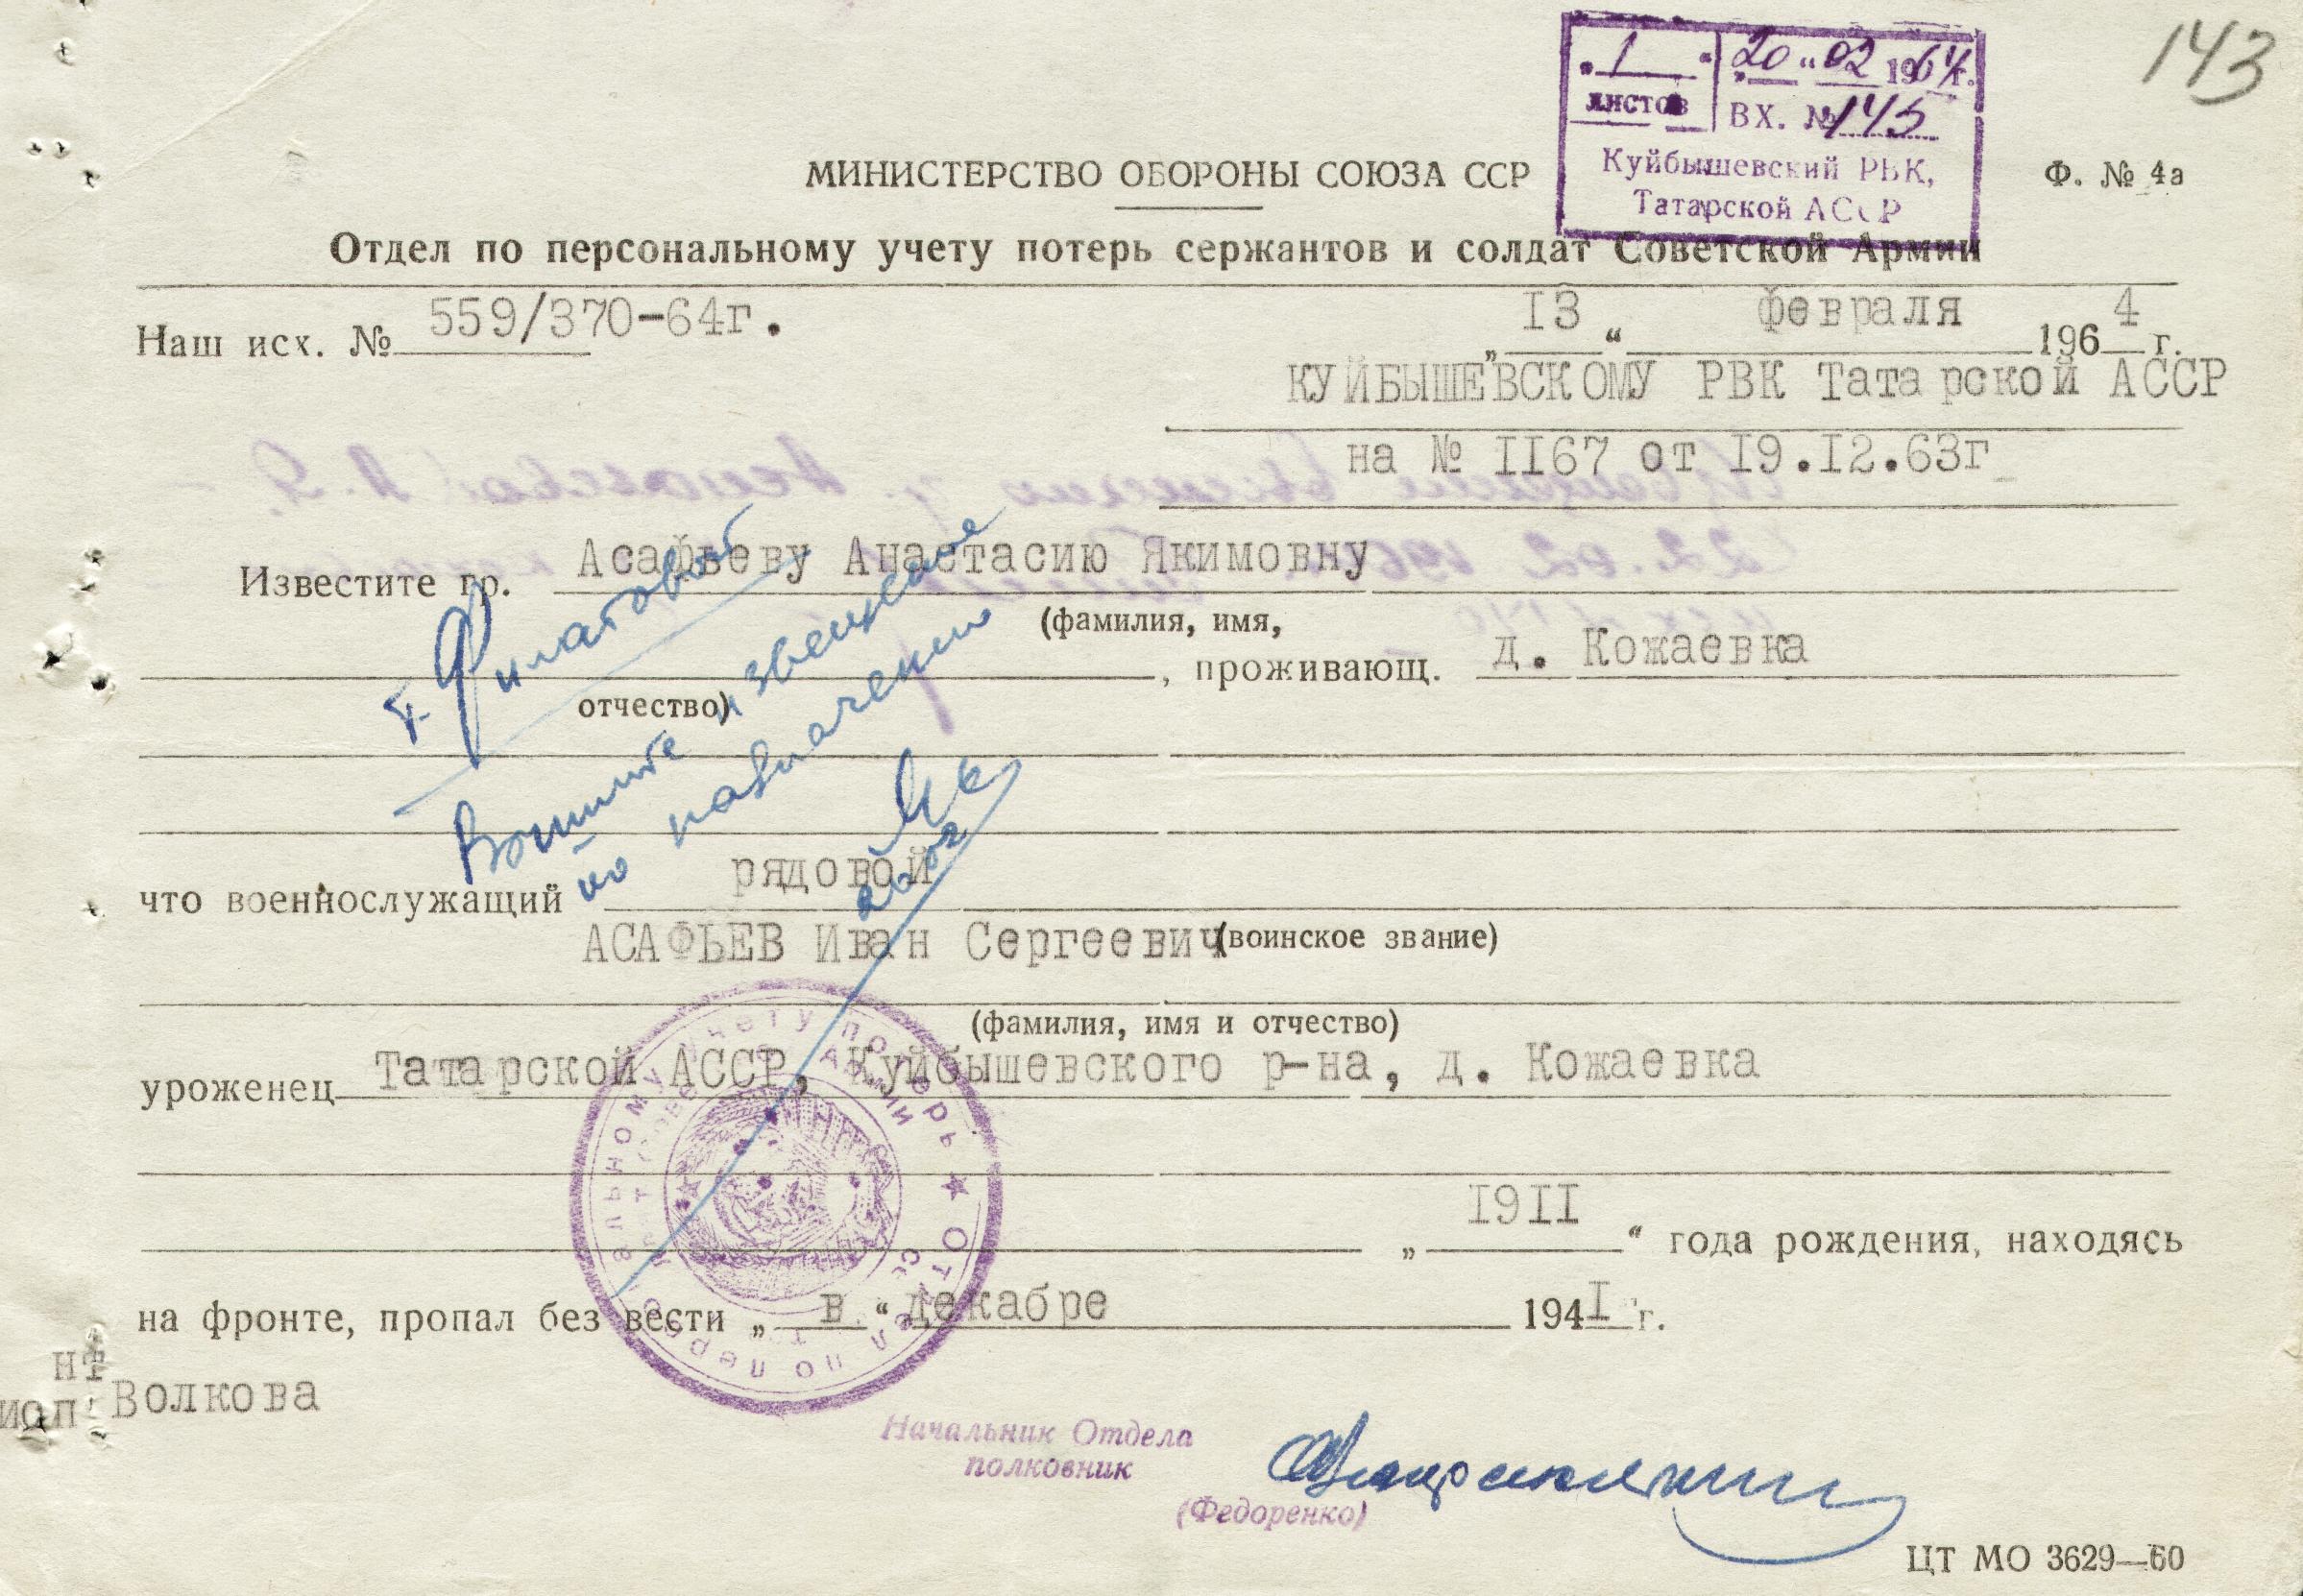 143
„1“ „20“ 02 1964г.
листов ВХ. № 145
Куйбышевский РВК,
Татарской АССР
МИНИСТЕРСТВО ОБОРОНЫ СОЮЗА ССР
Ф. № 4а
Отдел по персональному учету потерь сержантов и солдат Советской Армии
Наш исх. № 559/370-64г.
„I3“ февраля 1964 г.
КУЙБЫШЕВСКОМУ РВК Татарской АССР
на № II67 от I9.I2.63г
Известите гр. Асафьеву Анастасию Якимовну
(фамилия, имя,
, проживающ. д. Кожаевка
отчество)
т. Филатовой
Вышлите извещение
по назначению
что военнослужащий рядовой
АСАФЬЕВ Иван Сергеевич (воинское звание)
(фамилия, имя и отчество)
уроженец Татарской АССР, Куйбышевского р-на, д. Кожаевка
„I9II“ года рождения, находясь
на фронте, пропал без вести „в“ декабре 194I г.
нт
исп. Волкова
Начальник Отдела
полковник
(Федоренко)
ЦТ МО 3629—60